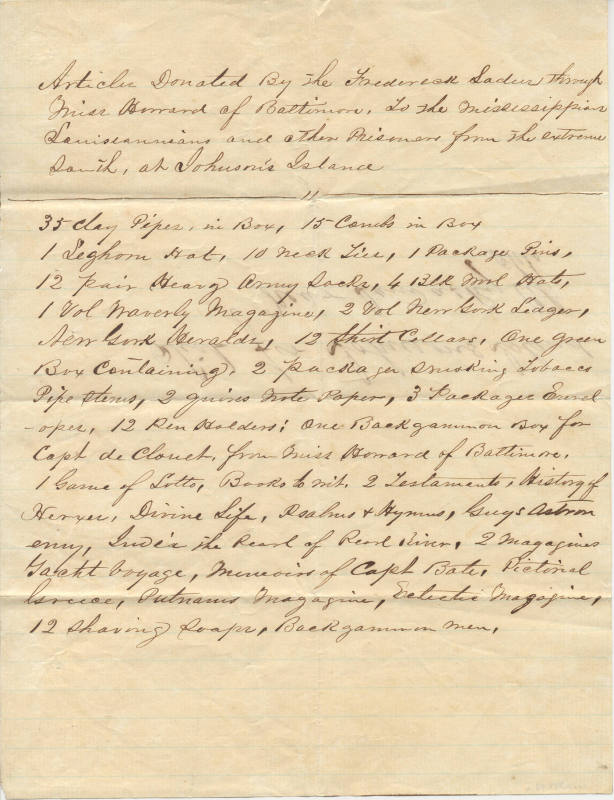 Articles Donated By the Frederick Ladies through
Miss Howard of Baltimore, To the Mississippian
Louisiannians and other Prisoners from the extreme
South, at Johnson's Island
"
35 Clay Pipes, in Box, 15 Combs in Box
1 Leghorn Hat, 10 Neck Ties, 1 Package Pins,
12 pair Heavy Army Socks, 4 Blk Wol Hats,
1 Vol Waverly Magazine, 2 Vol New York Ledger,
New York Heralds, 12 Shirt Collars, One green
Box Containing, 2 packages smoking Tobacco
Pipe stems, 2 quires Note Paper, 3 Packages Envel
-opes, 12 Pen Holders; One Backgammon Box for
Capt de Clouet, from Miss Howard of Baltimore.
1 Game of Lotto, Books to wit, 2 Testaments, History of
Xerxes, Divine Life, Psalms & Hymns, Guys Astron
omy, Inde'x the Pearl of Pearl River, 2 Magazines
Yacht Voyage, Memoirs of Capt Bate, Pictorial
Greece, Putnams Magazine, Eclectic Magazine,
12 Shaving Soaps, Backgammon men,